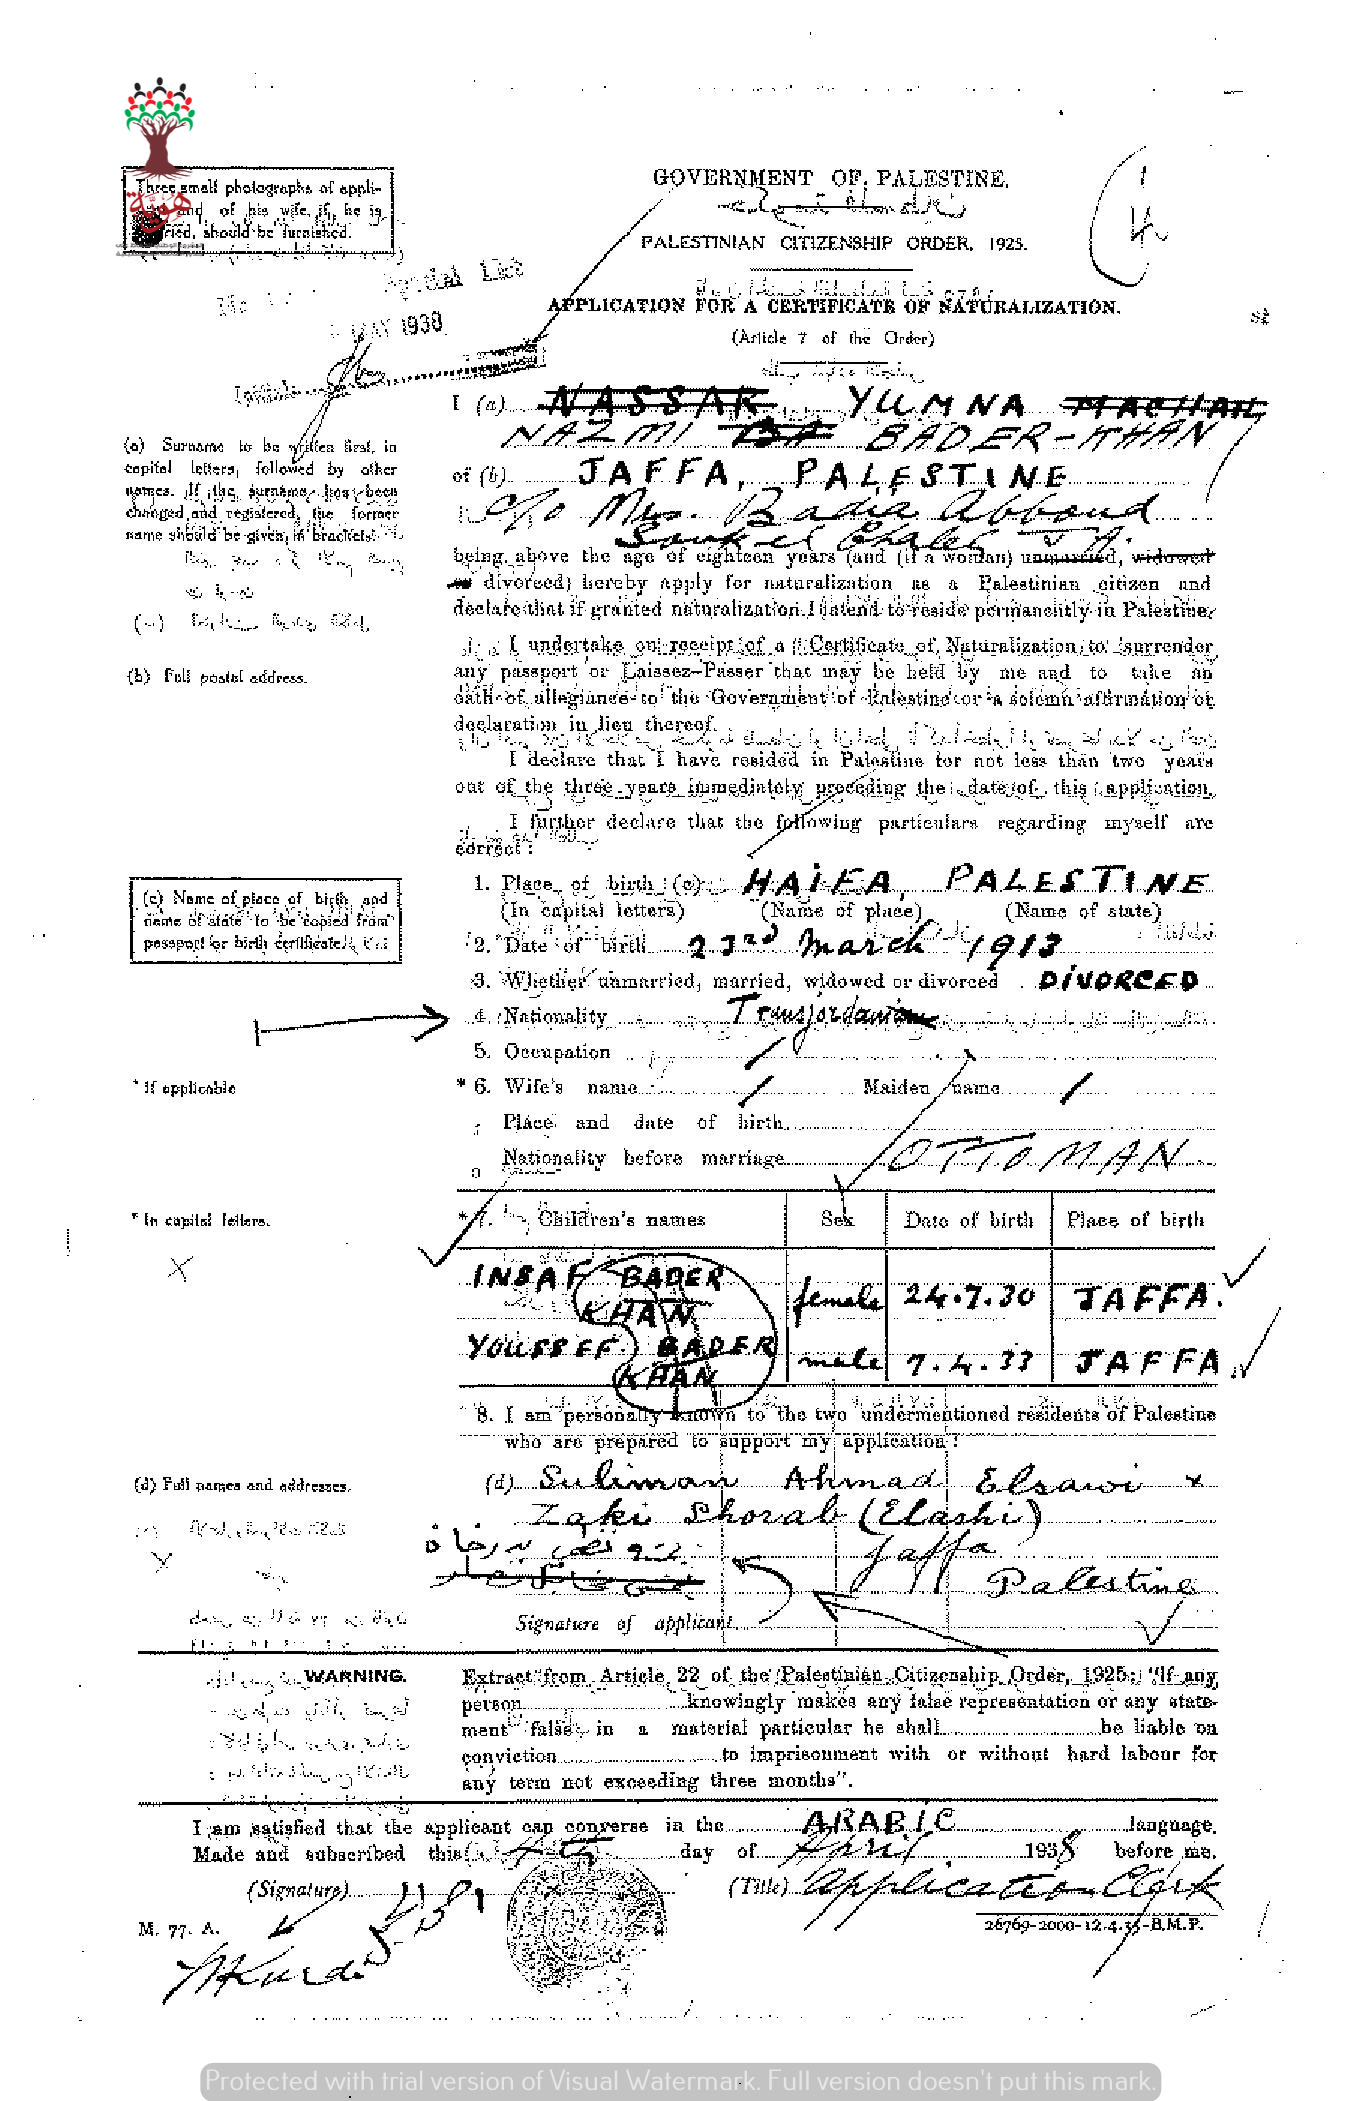 هوية
Three small photographs of appli-
and of his wife, if he is
ried, should be furnished.
GOVERNMENT OF PALESTINE.
PALESTINIAN CITIZENSHIP ORDER, 1925.
4
Special List
MAY 1938
Initials
APPLICATION FOR A CERTIFICATE OF NATURALIZATION.
(Article 7 of the Order)
I (a) NASSAR YUMNA
NAZMI BADER-KHAN
(a) Surname to be written first, in
capital letters, followed by other
names. If the surname has been
changed and registered, the former
name should be given in brackets.
of (b) JAFFA, PALESTINE
c/o Mrs. Badia Abboud
being above the age of eighteen years (and (if a woman) unmarried, widowed
or divorced) hereby apply for naturalization as a Palestinian citizen and
declare that if granted naturalization I intend to reside permanently in Palestine.
(b) Full postal address.
I undertake on receipt of a Certificate of Naturalization to surrender
any passport or Laissez-Passer that may be held by me and to take an
oath of allegiance to the Government of Palestine or a solemn affirmation or
declaration in lieu thereof.
I declare that I have resided in Palestine for not less than two years
out of the three years immediately preceding the date of this application.
I further declare that the following particulars regarding myself are
correct:
(c) Name of place of birth and
name of state to be copied from
passport or birth certificate.
1. Place of birth (c) HAIFA, PALESTINE
(In capital letters) (Name of place) (Name of state)
2. Date of birth 23rd March 1913
3. Whether unmarried, married, widowed or divorced DIVORCED
4. Nationality Transjordanian
5. Occupation /
* If applicable
* 6. Wife's name / Maiden name /
Place and date of birth
Nationality before marriage OTTOMAN
* In capital letters.
* 7. Children's names Sex Date of birth Place of birth
INSAF BADER KHAN female 24.7.30 JAFFA.
YOUSSEF BADER KHAN male 7.4.33 JAFFA.
8. I am personally known to the two undermentioned residents of Palestine
who are prepared to support my application:
(d) Full names and addresses.
(d) Suliman Ahmad Elsawi &
Zaki Shorab (Elashi)
Jaffa
Palestine
Signature of applicant
WARNING.
Extract from Article 22 of the Palestinian Citizenship Order, 1925: "If any
person knowingly makes any false representation or any state-
ment false in a material particular he shall be liable on
conviction to imprisonment with or without hard labour for
any term not exceeding three months".
I am satisfied that the applicant can converse in the ARABIC language.
Made and subscribed this 4th day of April 1938 before me.
(Signature) (Title) Application Clerk
M. 77. A.
26769-2000-12.4.35-B.M.P.
Kurdi
Protected with trial version of Visual Watermark. Full version doesn't put this mark.